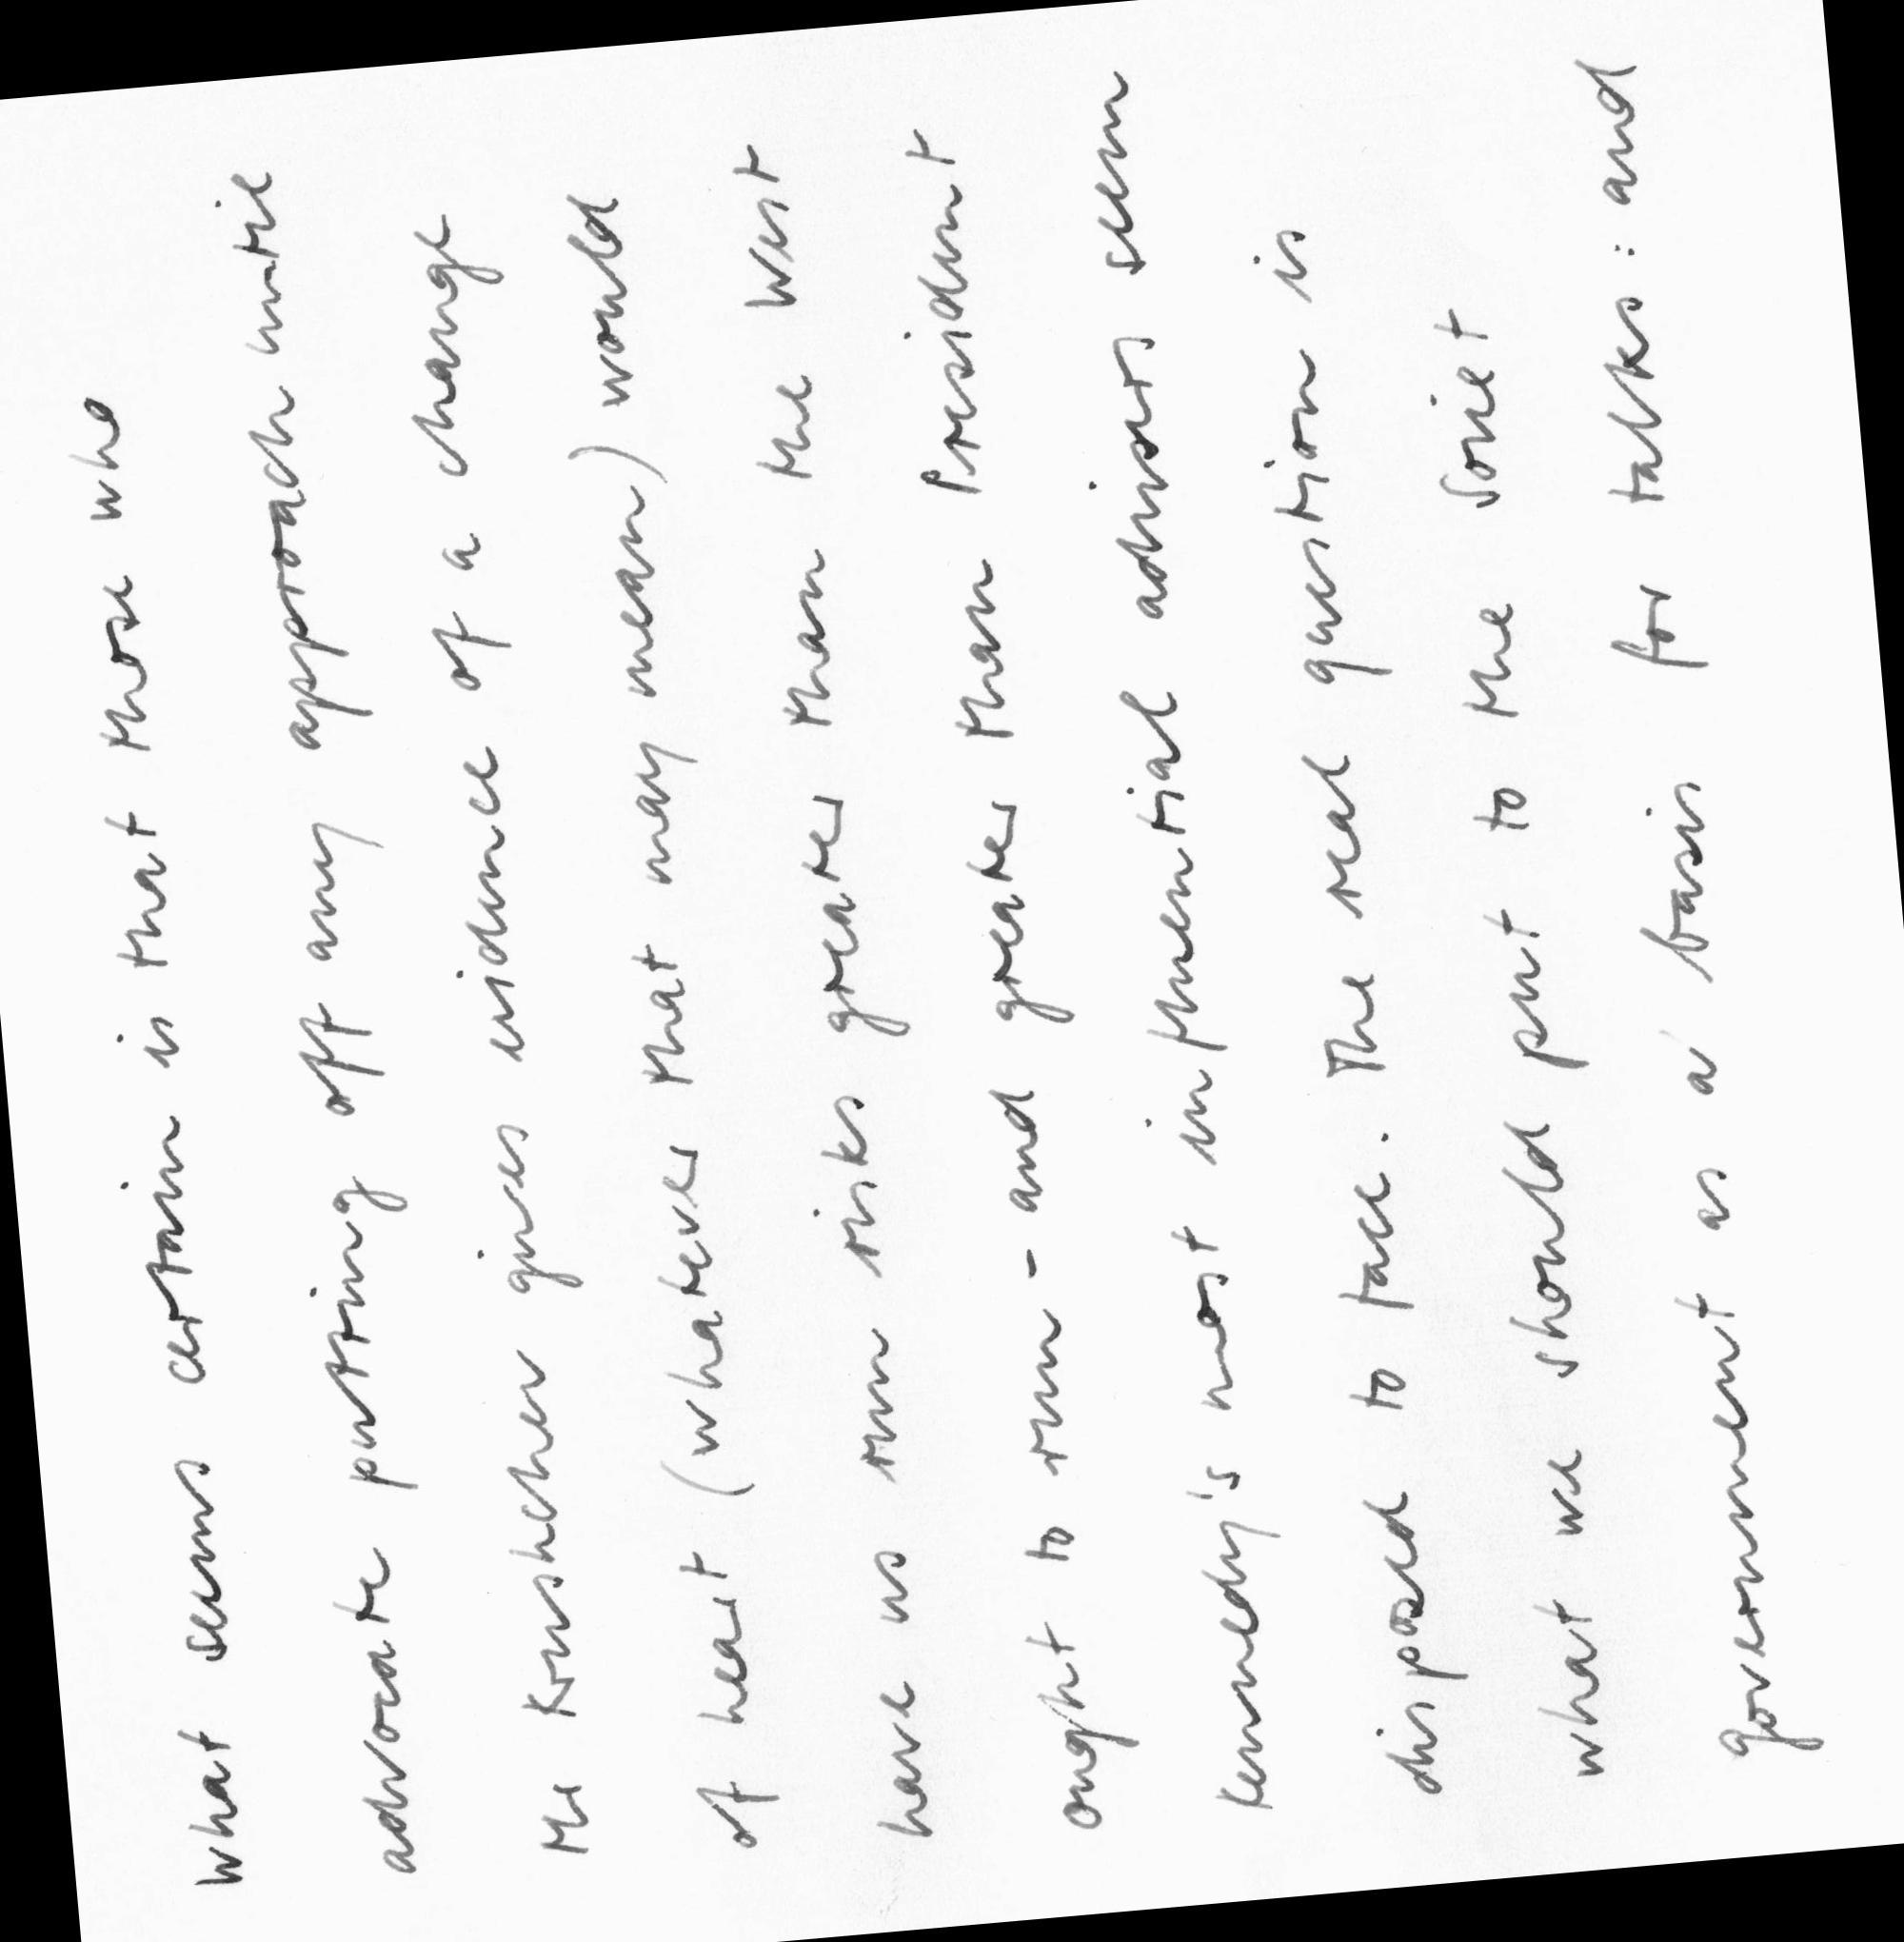 What seems certain is that those who
advocate putting off any approach until
Mr Krushchev gives evidence of a change
of heart (whatever that may mean) would
have us run risks greater than the West
ought to run - and greater than President
Kennedy's most influential advisers seem
disposed to face. The real question is
what we should put to the Soviet
government as a basis for talks: and